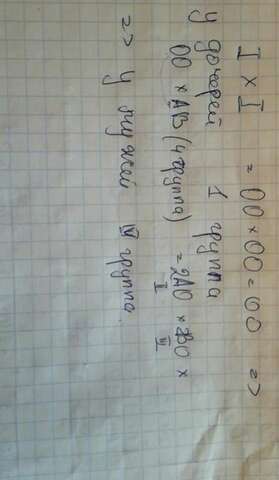 I × I = 00 × 00 = 00 =>
у дочерей 1 группа
00 × АВ (4 группа) = 2А0 × 2В0 ×
II III
=> у мужей IV группа.